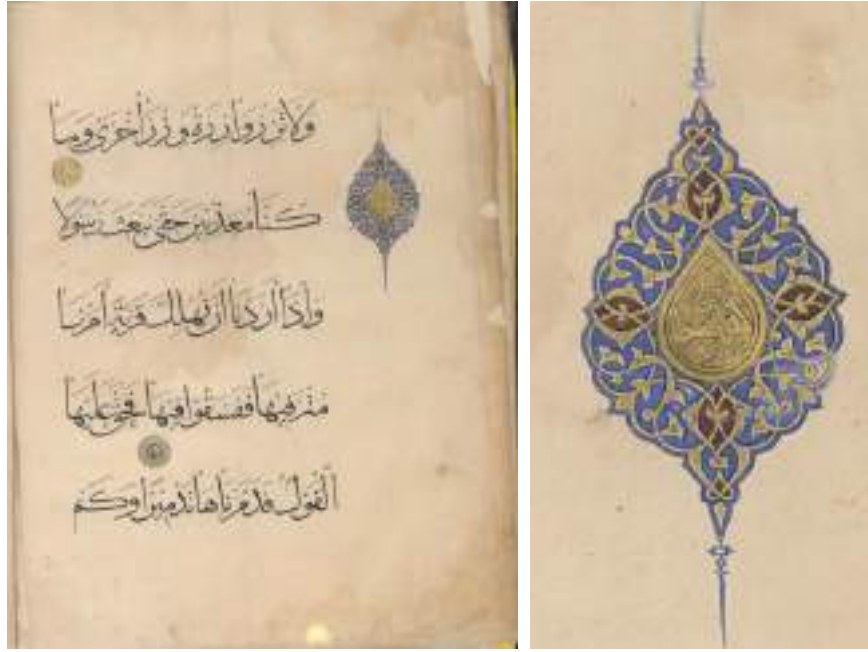 ولا تزر وازرة وزر أخرى وما
كنا معذبين حتى نبعث رسولا
وإذا أردنا أن نهلك قرية أمرنا
مترفيها ففسقوا فيها فحق عليها
القول فدمرناها تدميرا وكم